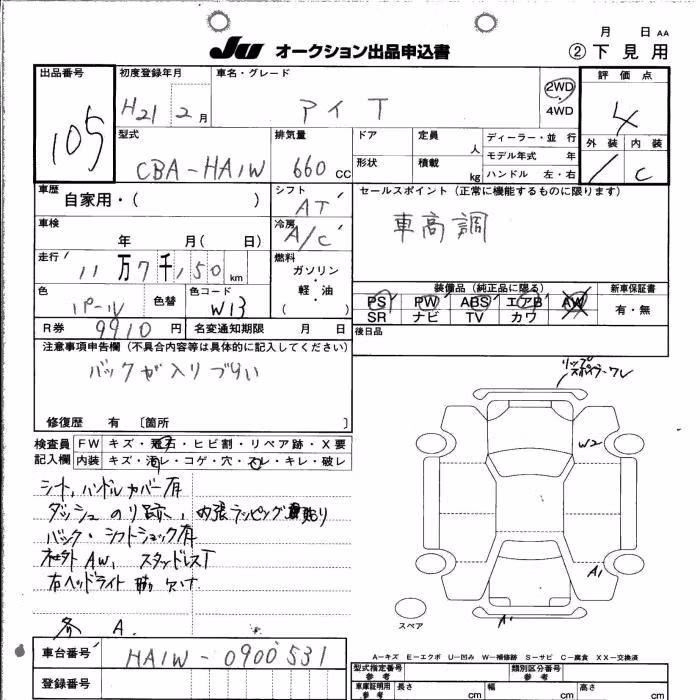 JU オークション出品申込書
月 日 AA
② 下見用
出品番号
105
初度登録年月
H21 2月
車名・グレード
アイ T
2WD
4WD
評価点
4
外装 内装
C
型式
CBA-HA1W
排気量
660 CC
ドア
定員
人
形状
積載
kg
ディーラー・並行
モデル年式 年
ハンドル 左・右
車歴
自家用・( )
シフト
AT
セールスポイント(正常に機能するものに限ります)
車高調
車検
年 月( 日)
冷房
A/C
走行
11万7千150km
燃料
ガソリン
・
軽・油
( )
装備品(純正品に限る)
PS PW ABS エアB AW
SR ナビ TV カワ
新車保証書
有・無
色
パール
色替
色コード
W13
R券
9910円
名変通知期限 月 日
後日品
注意事項申告欄(不具合内容等は具体的に記入してください)
バックが入りづらい
修復歴 有 〔箇所 〕
リップ
スポイラーワレ
検査員
記入欄
FW キズ・飛石・ヒビ割・リペア跡・X要
内装 キズ・汚レ・コゲ・穴・スレ・キレ・破レ
シート,ハンドルカバー有
ダッシュ のり跡, 内張ラッピング貼り
バック・シフトショック有
社外AW, スタッドレスT
右ヘッドライト 欠け
各 A
W2
A1
A1
スペア
車台番号
HA1W-0900531
登録番号
A−キズ E−エクボ U−凹み W−補修跡 S−サビ C−腐食 XX−交換済
型式指定番号
参考
類別区分番号
参考
車庫証明用
参考
長さ cm
幅 cm
高さ cm